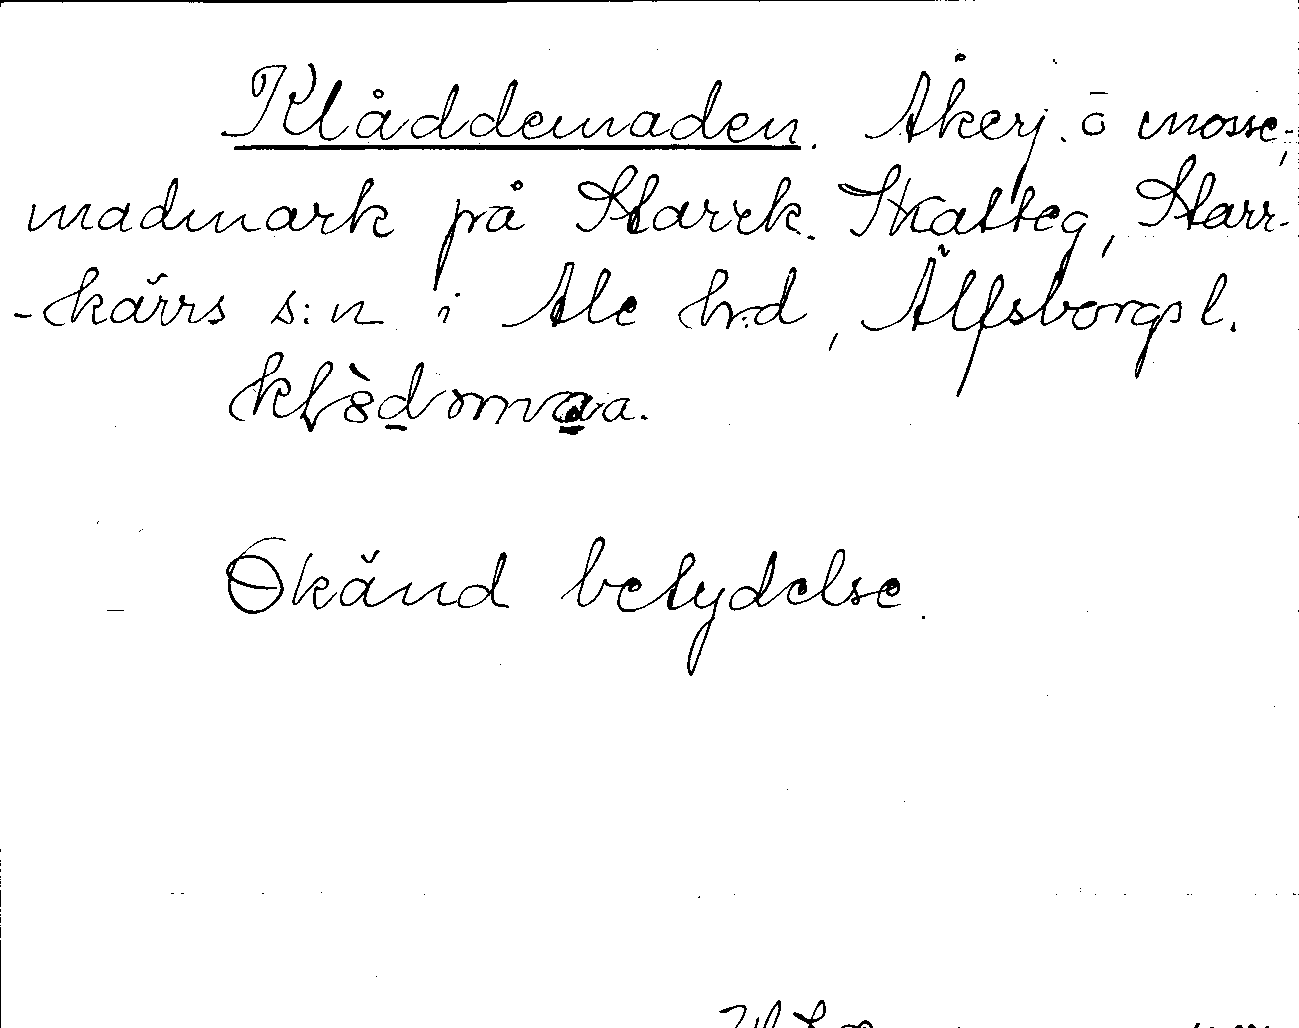 Klåddemaden. Åkerj. ō mosse,
madmark på Starrk. Skatteg, Starr-
-kärrs s:n i Ale h:d, Älfsborgs l.
Okänd betydelse.